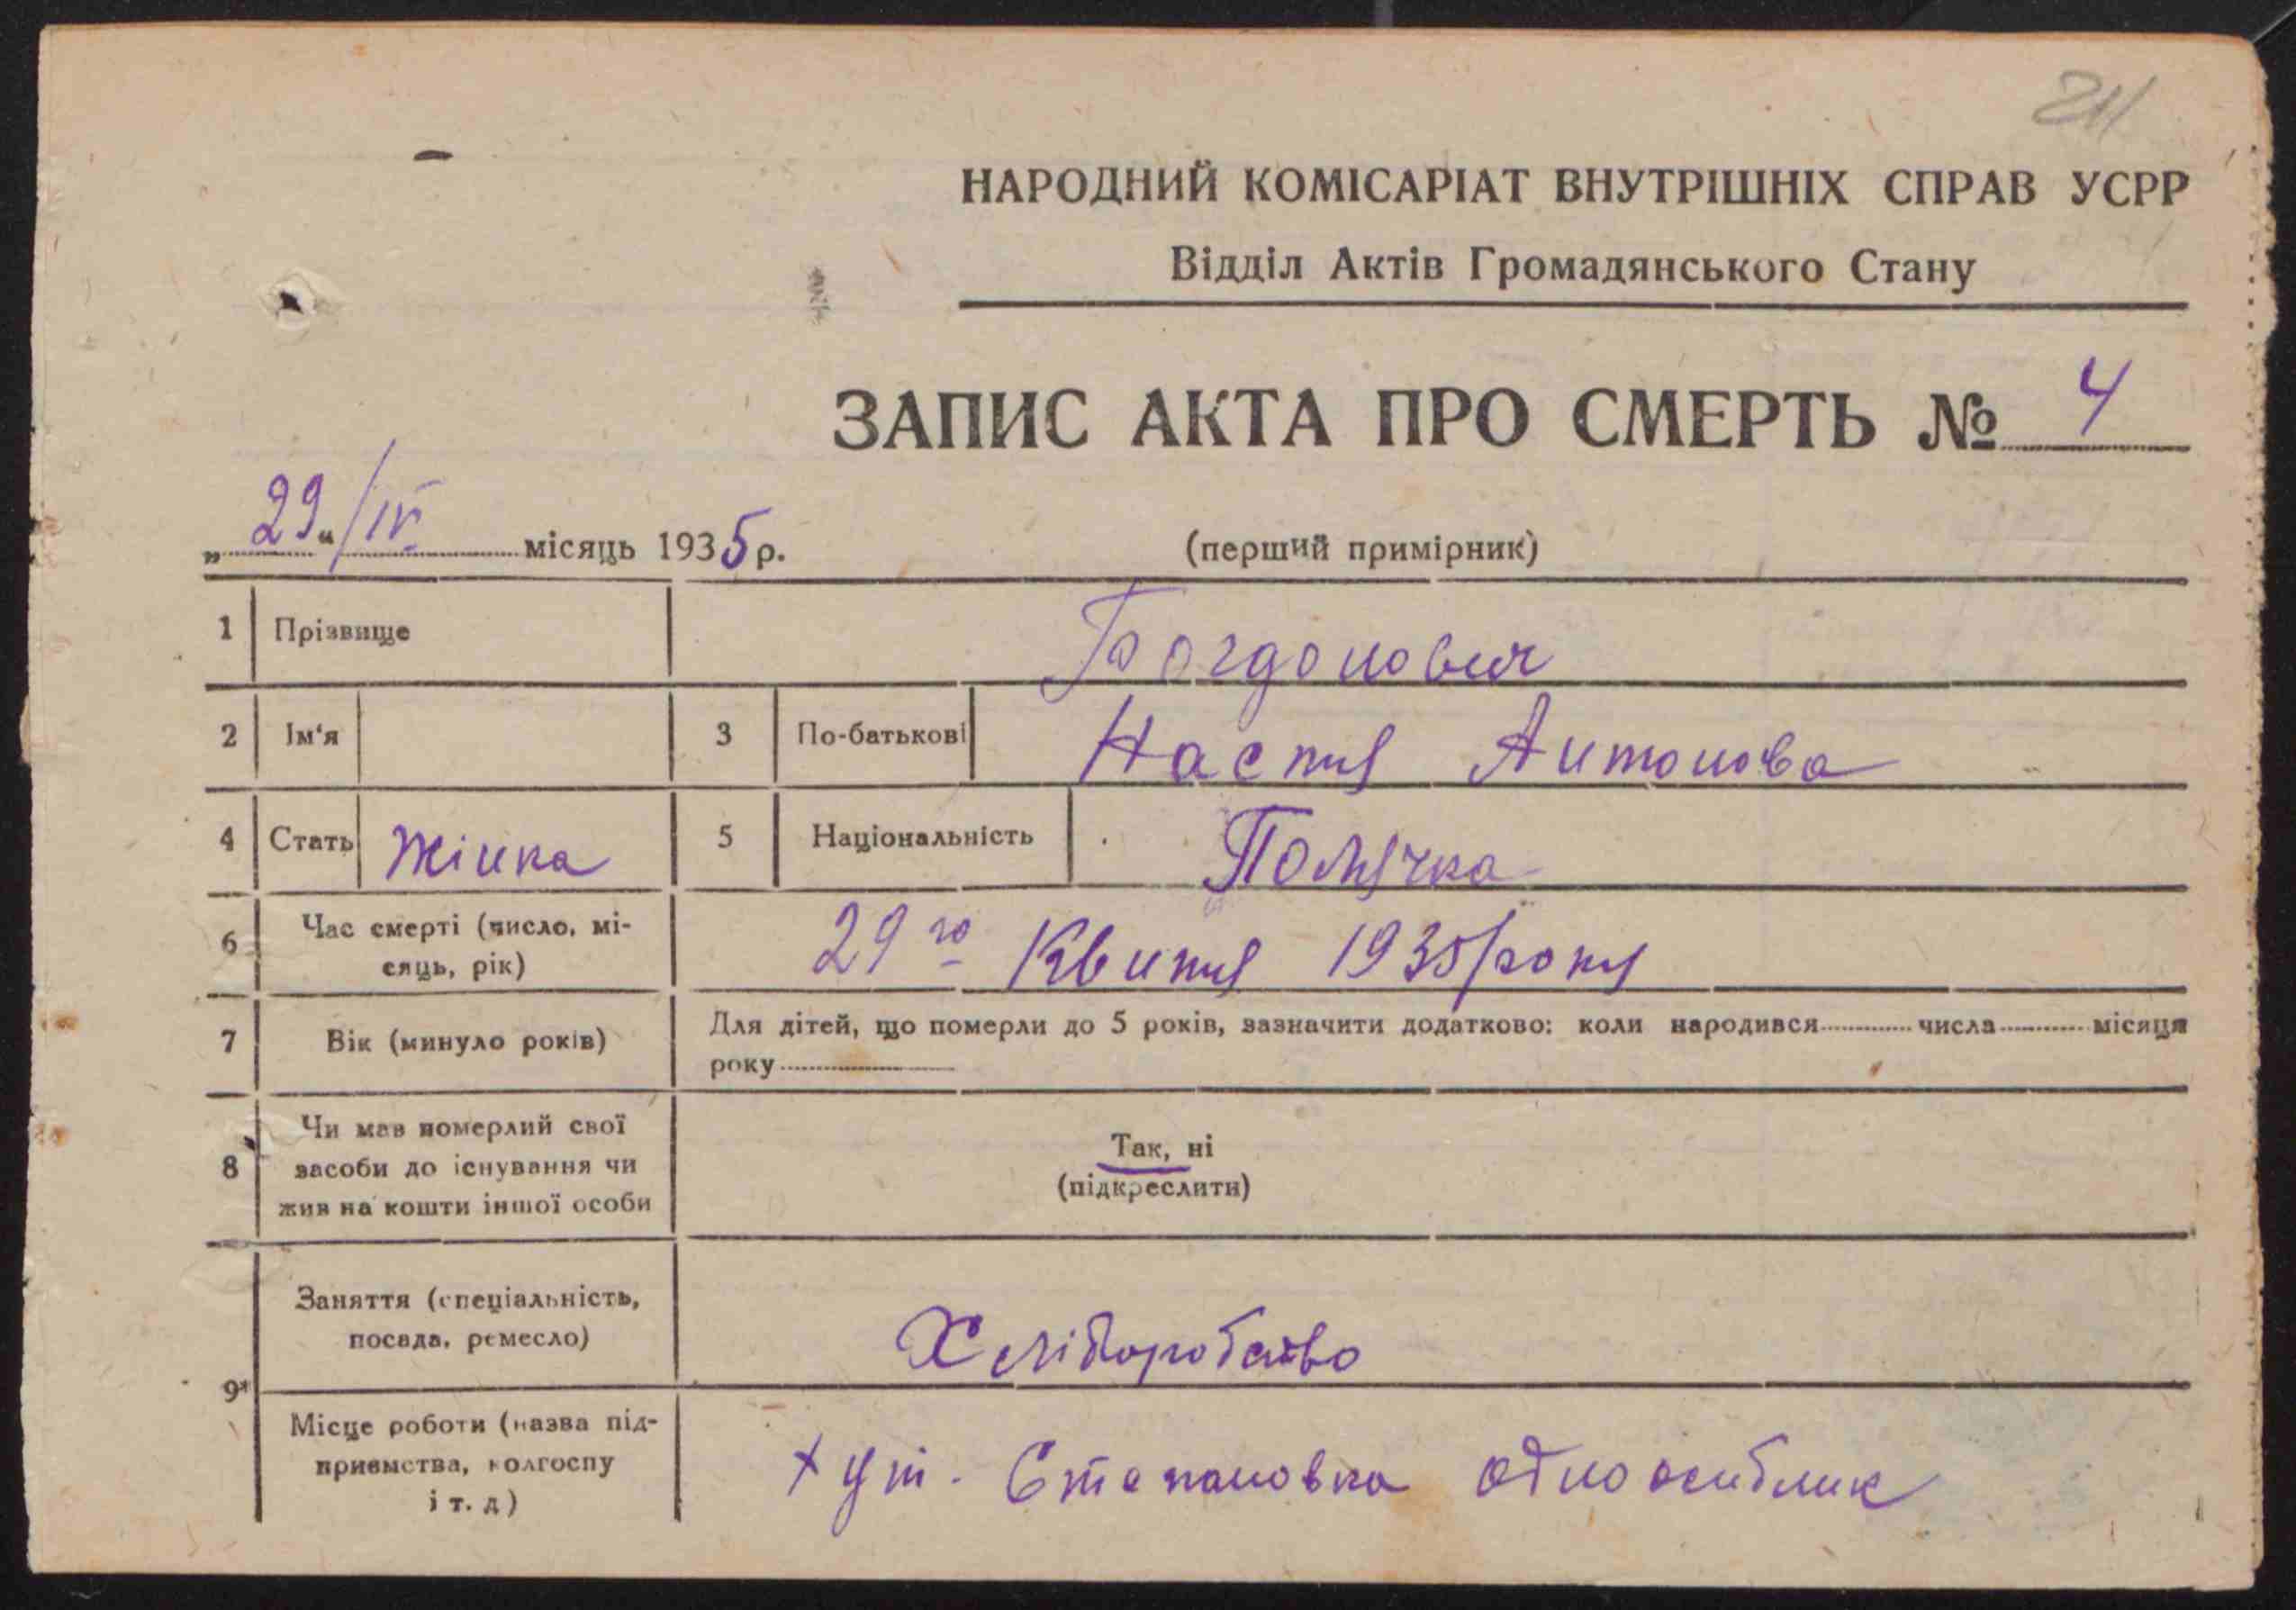 211
НАРОДНИЙ КОМІСАРІАТ ВНУТРІШНІХ СПРАВ УСРР
Відділ Актів Громадянського Стану
ЗАПИС АКТА ПРО СМЕРТЬ № 4
„29“/IV місяць 1935 р.
(перший примірник)
1 Прізвище Богдонович
2 Ім‘я 3 По-батькові Настя Антонова
4 Стать Жінка 5 Національність Полячка
6 Час смерті (число, мі-
сяць, рік) 29го Квитня 1935 року
7 Вік (минуло років) Для дітей, що померли до 5 років, зазначити додатково: коли народився числа місяця
року
8 Чи мав померлий свої
засоби до існування чи
жив на кошти іншої особи
Так, ні
(підкреслити)
9* Заняття (спеціальність,
посада, ремесло) Хеліборобство
Місце роботи (назва під-
приємства, колгоспу
і т. д) хут. Степановка одноосиблик